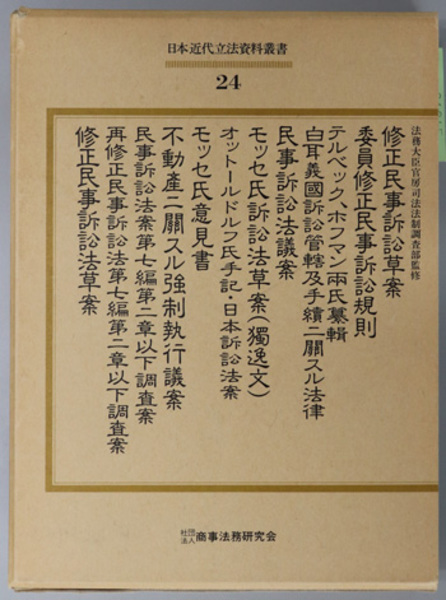 日本近代立法資料叢書
24
法務大臣官房司法法制調査部監修
修正民事訴訟法草案
委員修正民事訴訟規則
テルベック、ホフマン両氏纂輯
白耳義國訴訟管轄及手續ニ關スル法律
民事訴訟法議案
モッセ氏訴訟法草案(獨逸文)
オットールドルフ氏手記・日本訴訟法案
モッセ氏意見書
不動産ニ關スル強制執行議案
民事訴訟法案第七編第二章以下調査案
再修正民事訴訟法第七編第二章以下調査案
修正民事訴訟法草案
社団法人 商事法務研究会